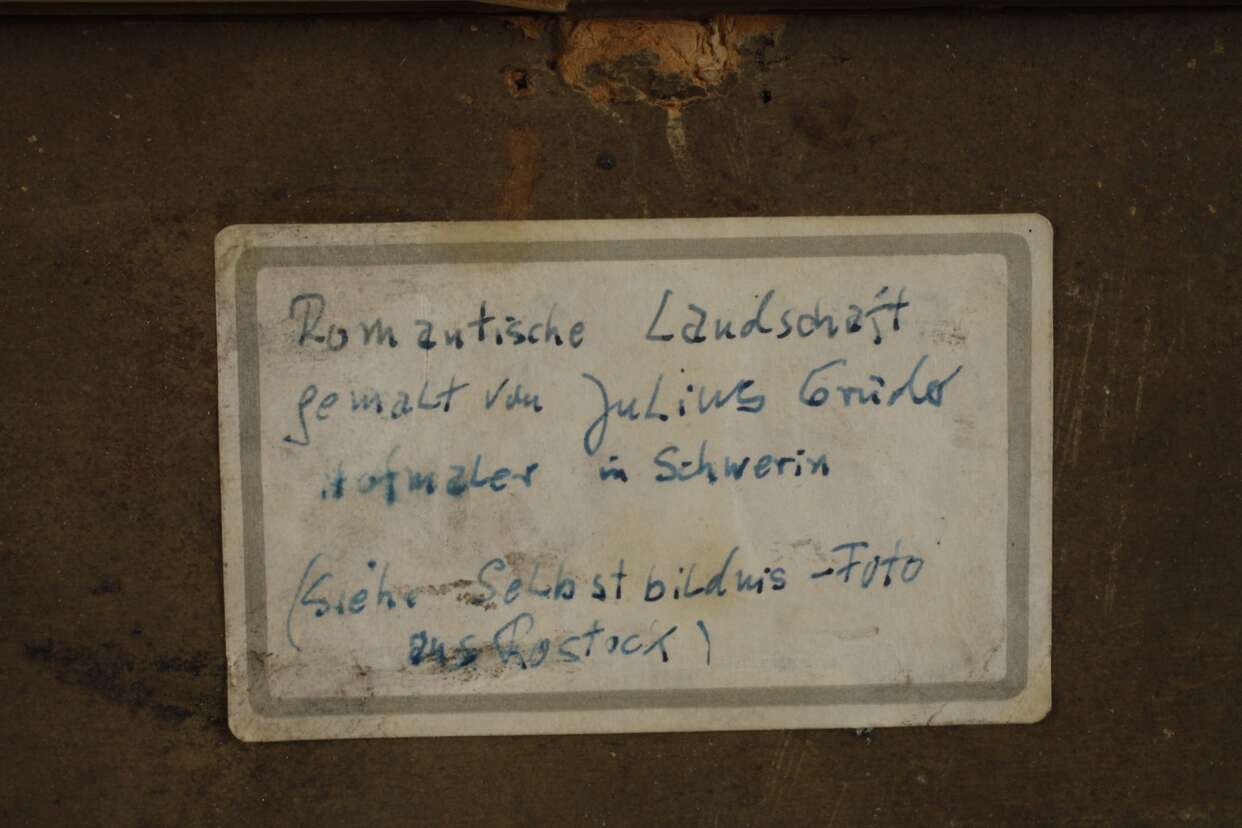 Romantische Landschaft
gemalt von Julius Grüder
Hofmaler in Schwerin
(Siehe Selbstbildnis-Foto
aus Rostock)